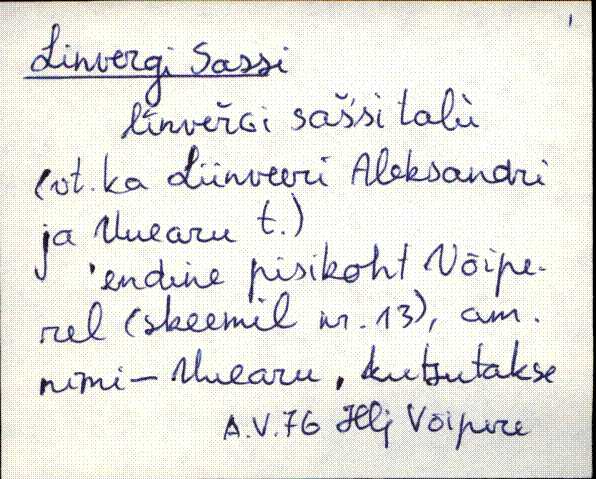 1
Linvergi Sassi
línveŕGi saš́si talù
(vt. ka Liinveeri Aleksandri
ja Uuearu t.)
'endine pisikoht Võipe-
rel (skeemil nr. 13), am.
nimi – Uuearu, kutsutakse
A.V.76 Hlj Võipere